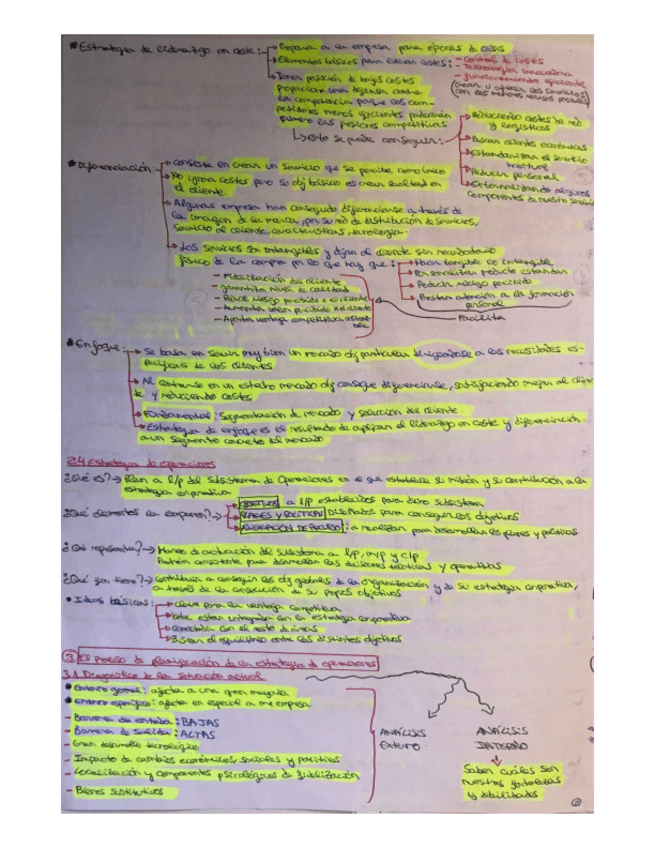 * Estrategia de liderazgo en coste: → Prepara a la empresa para épocas de crisis
→ Elementos básicos para liderar costes: - Control de costes
- Tecnología innovadora
- Funcionamiento eficiente
(crear u ofrecer los servicios
con los menores recursos posibles)
→ Tener posición de bajos costes
proporciona una defensa contra
la competencia porque los com-
petidores menos eficientes padecerán
primero las presiones competitivas
↳ Esto se puede conseguir: → Reduciendo costes de red
y logísticos
→ Buscan clientes económicos
→ Estandarizan el servicio
habitual
→ Reducir personal
→ Externalizando algunos
componentes de nuestro servicio
* Diferenciación: → Consiste en crear un servicio que se percibe como único
→ No ignora costes pero su obj básico es crear lealtad en
el cliente
→ Algunas empresas han conseguido diferenciarse a través de
la imagen de la marca, por su red de distribución de servicios,
servicio al cliente, características, tecnología.
→ Los servicios son intangibles y dejan al cliente sin recordatorio
físico de la compra por lo que hay que: → Hacer tangible lo intangible
→ Personalizar producto estándar
→ Reducir riesgo percibido
→ Prestar atención a la formación
personal
Facilita
- Fidelización del cliente
- garantiza nivel de calidad
- Reduce riesgo percibido x el cliente
- Aumenta valor percibido del cliente
- Aporta ventaja competitiva
* Enfoque: → Se basa en servir muy bien un mercado obj particular dirigiéndose a las necesidades es-
pecíficas de los clientes
→ Al centrarse en un estrecho mercado obj consigue diferenciarse, satisfaciendo mejor al clien-
te y reduciendo costes
→ Fundamental: Segmentación de mercado y selección del cliente.
→ Estrategia de enfoque es el resultado de aplicar el liderazgo en coste y diferenciación
a un segmento concreto del mercado
2.4 Estrategia de operaciones
¿Qué es? → Plan a l/p del Subsistema de Operaciones en el que establece su misión y su contribución a la
estrategia corporativa
¿Qué elementos la componen? → OBJETIVOS a l/p establecidos para dicho subsistema
→ PLANES Y POLÍTICAS Diseñados para conseguir los objetivos
→ ASIGNACIÓN DE RECURSOS: a realizar para desarrollar los planes y políticas
¿Qué representa? → Marco de actuación del subsistema a l/p, m/p y c/p.
Patrón consistente para desarrollar las decisiones tácticas y operativas
¿Qué fin tiene? → Contribuir a conseguir los obj globales de la organización y de su estrategia corporativa,
a través de la consecución de sus propios objetivos
• Ideas básicas: → Clave para la ventaja competitiva
→ Debe estar integrada con la estrategia corporativa
→ Conectada con el resto de áreas
→ Buscan el equilibrio entre los distintos objetivos
3 El proceso de planificación de la estrategia de operaciones
3.1 Diagnóstico de la situación actual
* Entorno general: afecta a una gran mayoría
* Entorno específico: afecta en especial a mi empresa
- Barrera de entrada: BAJAS
- Barrera de salida: ALTAS
- Gran desarrollo tecnológico
- Impacto de cambios económicos, sociales y políticos
- Localización y componentes psicológicos de fidelización
- Bienes sustitutivos
ANÁLISIS
Externo
ANÁLISIS
INTERNO
Saber cuáles son
nuestras fortalezas
y debilidades